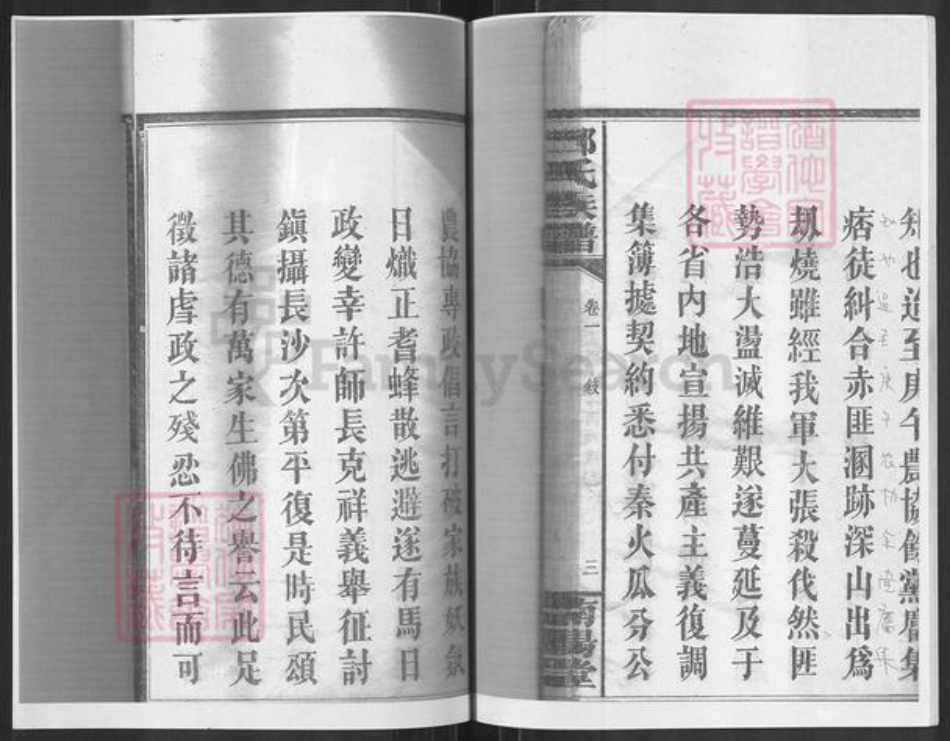 知也迨至庚午農協餘黨廣集
痞徒糾合赤匪溷跡深山出為
刼燒雖經我軍大張殺伐然匪
勢浩大盪滅維艱遂蔓延及于
各省內地宣揚共產主義復調
集簿據契約悉付秦火瓜分公
氏族譜
卷一
敍
三
南陽堂
農協專政倡言打破家族妖氛
日熾正耆蜂散逃避遂有馬日
政變幸許師長克祥義舉征討
鎮攝長沙次第平復是時民頌
其德有萬家生佛之譽云此足
徵諸虐政之殘忍不待言而可
FamilySearch